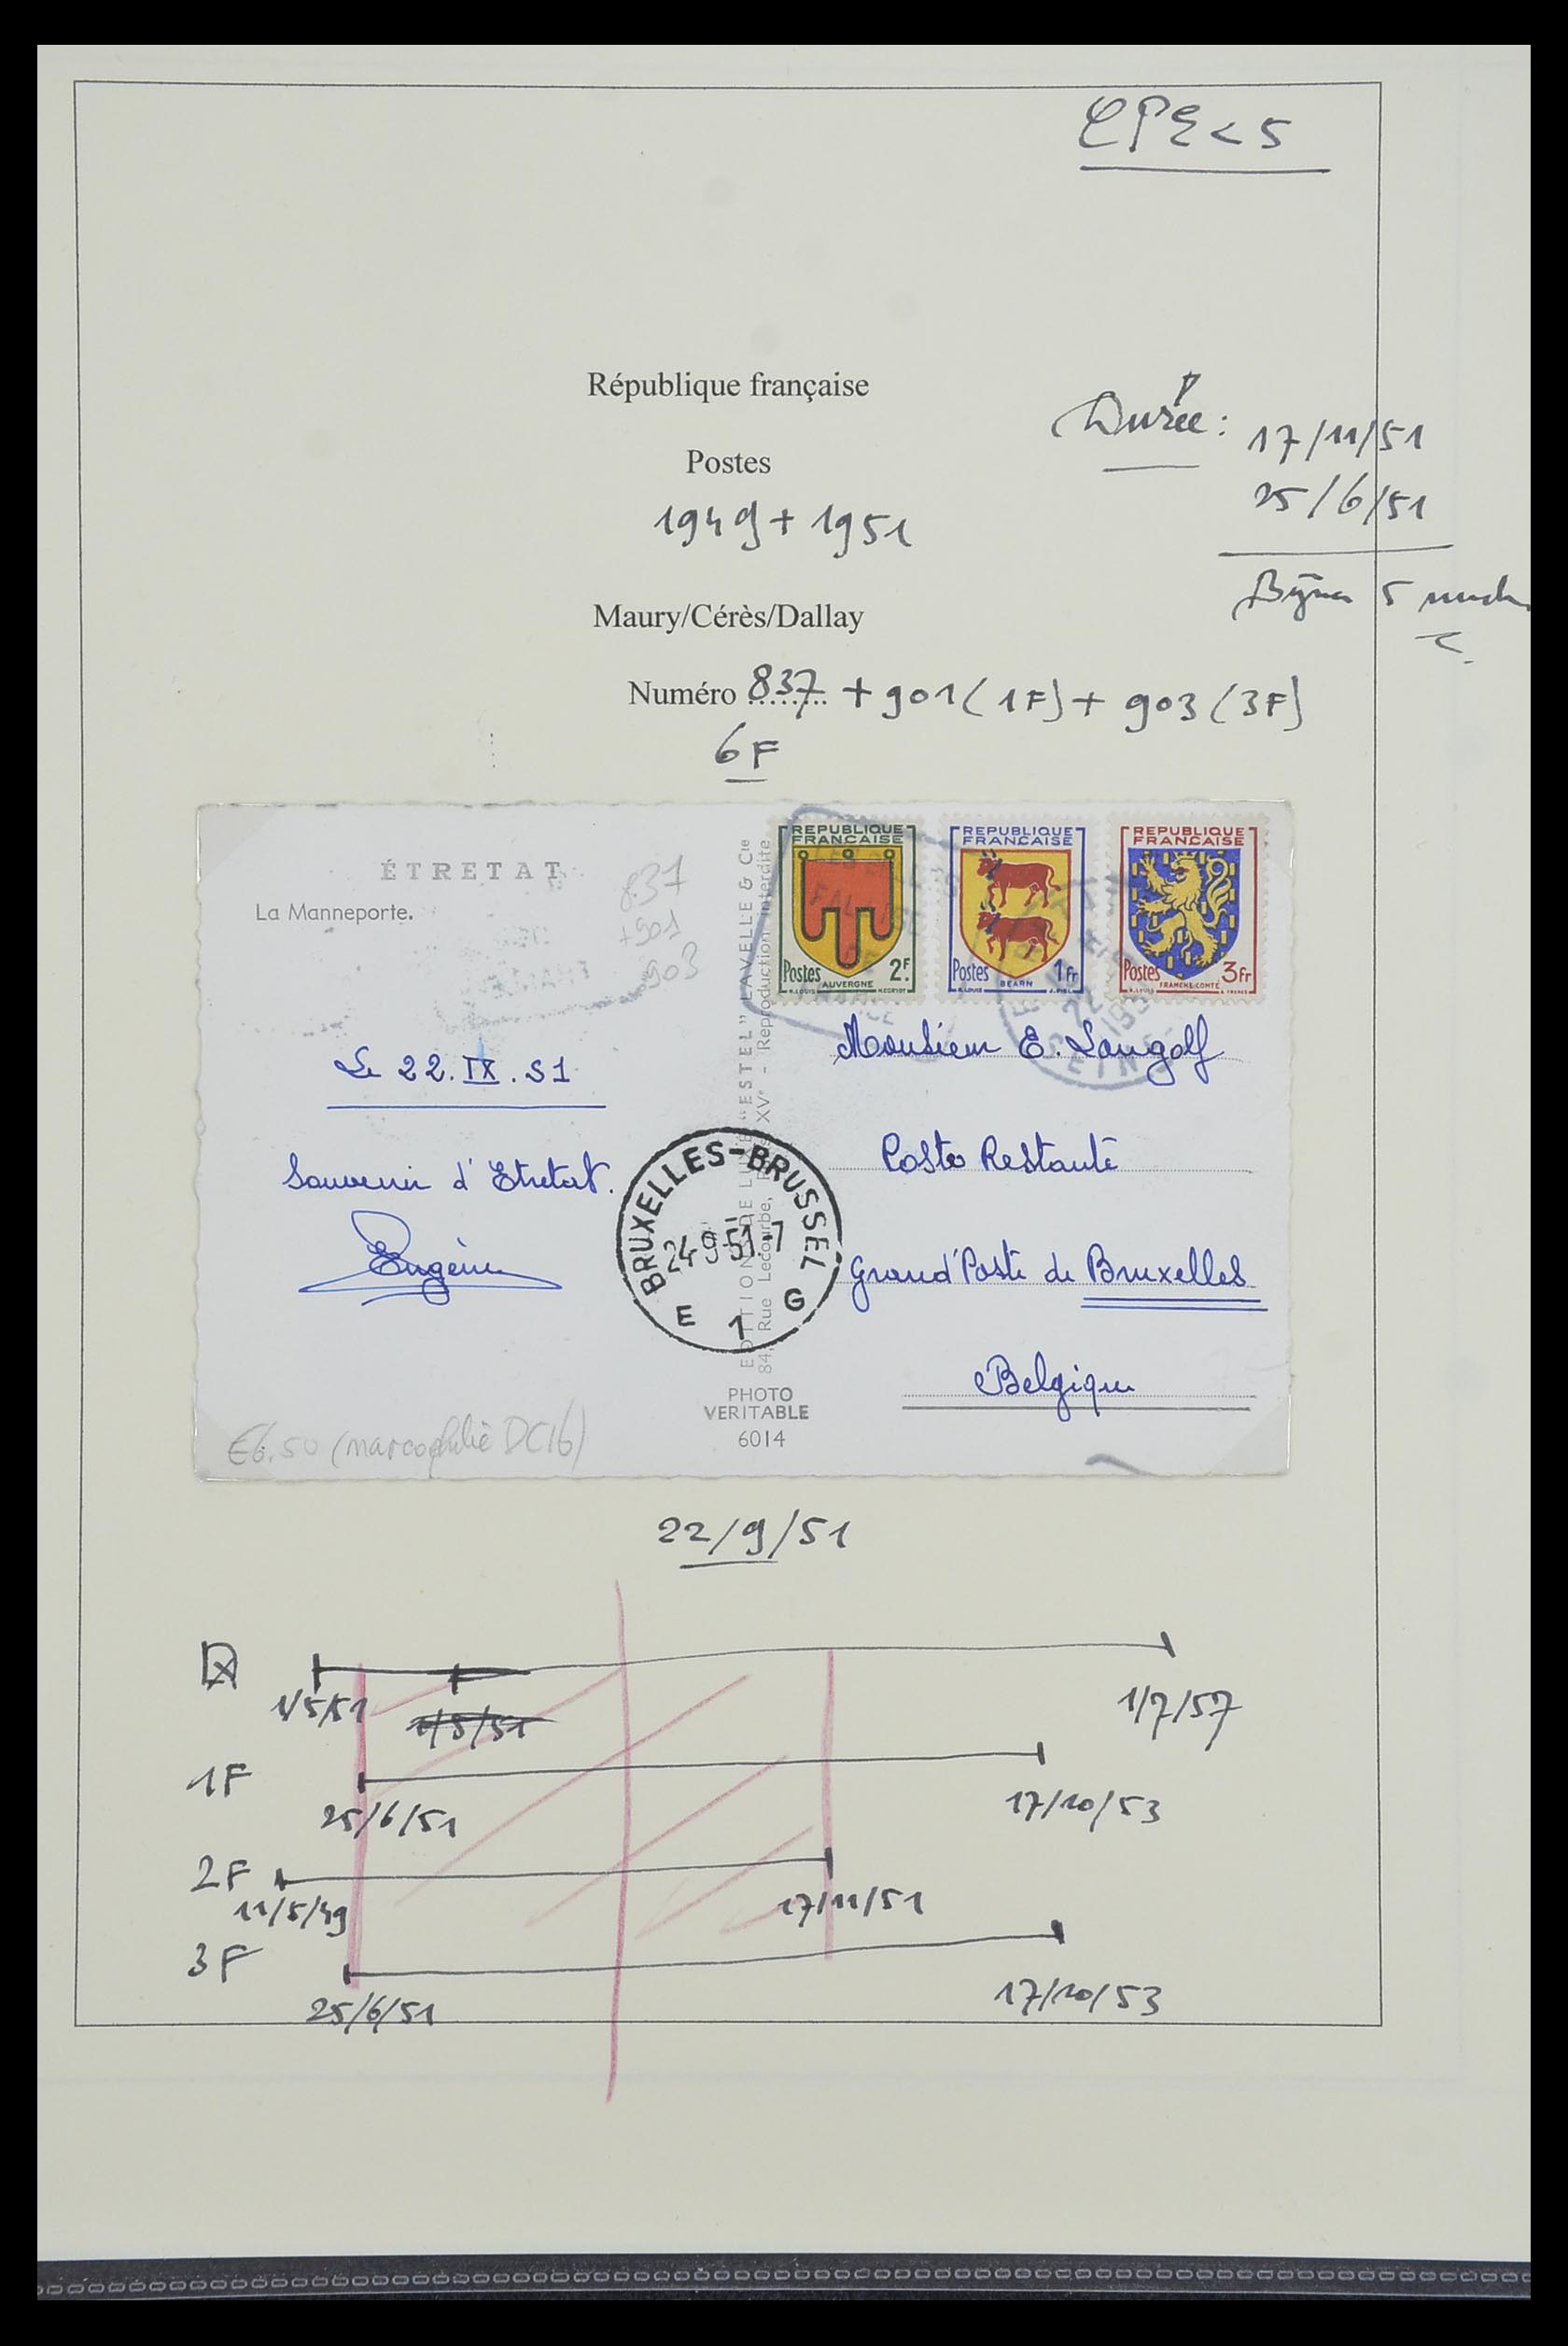 CPE < 5
République française
Postes
1949 + 1951
Durée :
17/11/51
25/6/51
5
Maury/Cérès/Dallay
Numéro 837 + 901 (1F) + 903 (3F)
6F
ÉTRETAT
La Manneporte.
837
+901
903
REPUBLIQUE FRANÇAISE
Postes 2F.
AUVERGNE
REPUBLIQUE FRANÇAISE
Postes 1Fr
BEARN
REPUBLIQUE FRANÇAISE
Postes 3Fr
FRANCHE-COMTÉ
Le 22.IX.51
Souvenir d'Etretat.
Eugène
"ESTEL" LAVELLE & Cie
Reproduction interdite
84, Rue Lecourbe,
BRUXELLES-BRUSSEL
24-9-51.-7
E 1 G
PHOTO
VERITABLE
6014
Monsieur E. Langolf
Poste Restante
Grand'Poste de Bruxelles
Belgique
€6.50 (marcophilie DC16)
22/9/51
1/5/51
1/5/51
1/7/57
1F
25/6/51
17/10/53
2F
11/5/49
17/11/51
3F
25/6/51
17/10/53